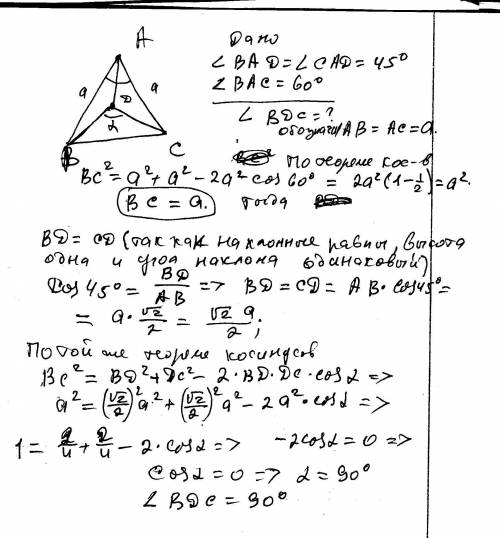 A
Дано
∠BAD=∠CAD=45°
∠BAC=60°
∠BDC=?
обозначим AB=AC=a.
a
a
D
α
B
C
По теореме кос-в
BC²=a²+a²-2a² cos 60° = 2a²(1-½)=a².
BC=a. тогда
BD=CD (так как наклонные равны, высота
одна и угол наклона одинаковый)
Cos 45°= BD/AB => BD=CD=AB·cos45°=
= a·√2/2 = √2 a/2;
По той же теореме косинусов
BC²=BD²+DC²-2·BD·DC·cosα =>
a²=(√2/2)²a²+(√2/2)²a²-2a²·cosα =>
1=2/4+2/4-2·cosα => -2cosα=0 =>
cosα=0 => α=90°
∠BDC=90°